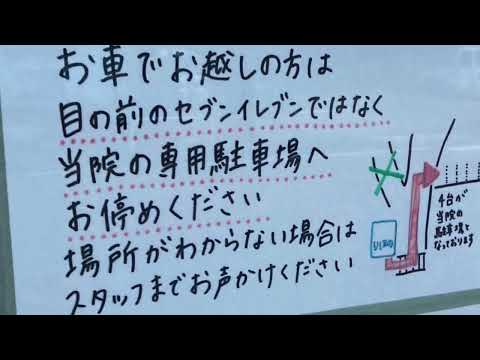 お車でお越しの方は
目の前のセブンイレブンではなく
当院の専用駐車場へ
お停めください
場所がわからない場合は
スタッフまでお声かけください
4台が
当院の
駐車場と
なっております